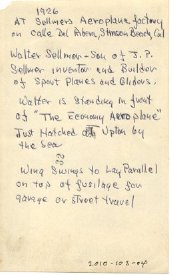 1926
AT Sellmers Aeroplane factory
on Calle Del Ribera, Stinson Beach, Cal
Walter Sellmer - Son of J. P.
Sellmer inventor and Builder
of Sport Planes and Gliders.
Walter is Standing in front
of "The Economy Aeroplane"
Just Hatched at Upton by
the Sea
Wing Swings to Lay Parallel
on top of fusilage for
garage or street travel
2010-108-04